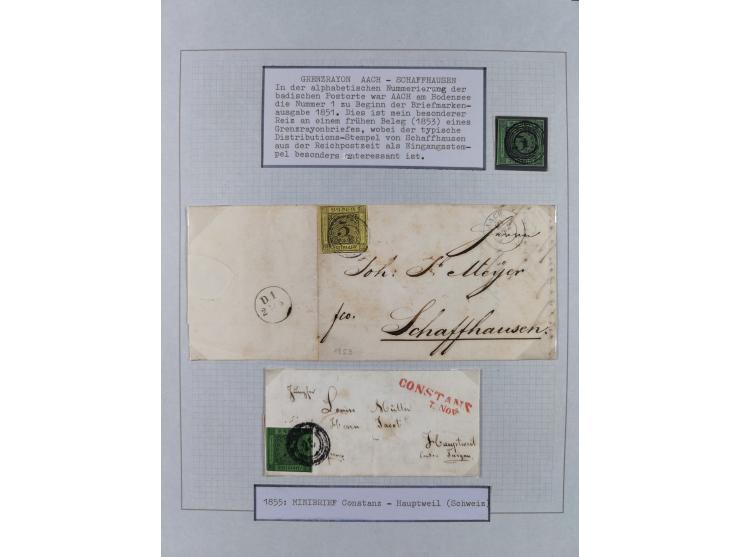 GRENZRAYON AACH - SCHAFFHAUSEN
In der alphabetischen Nummerierung der
badischen Postorte war AACH am Bodensee
die Nummer 1 zu Beginn der Briefmarken-
ausgabe 1851. Dies ist mein besonderer
Reiz an einem frühen Beleg (1853) eines
Grenzrayonbriefes, wobei der typische
Distributions-Stempel von Schaffhausen
aus der Reichpostzeit als Eingangsstem-
pel besonders interessant ist.
3
AACH
Herrn
Joh: F. Meyer
fco. Schaffhausen.
D.1
1853
CONSTANZ
7. NOV
Louise Müller
Herrn Jacob
Hauptweil
Canton Turgau
1855: MINIBRIEF Constanz - Hauptweil (Schweiz)